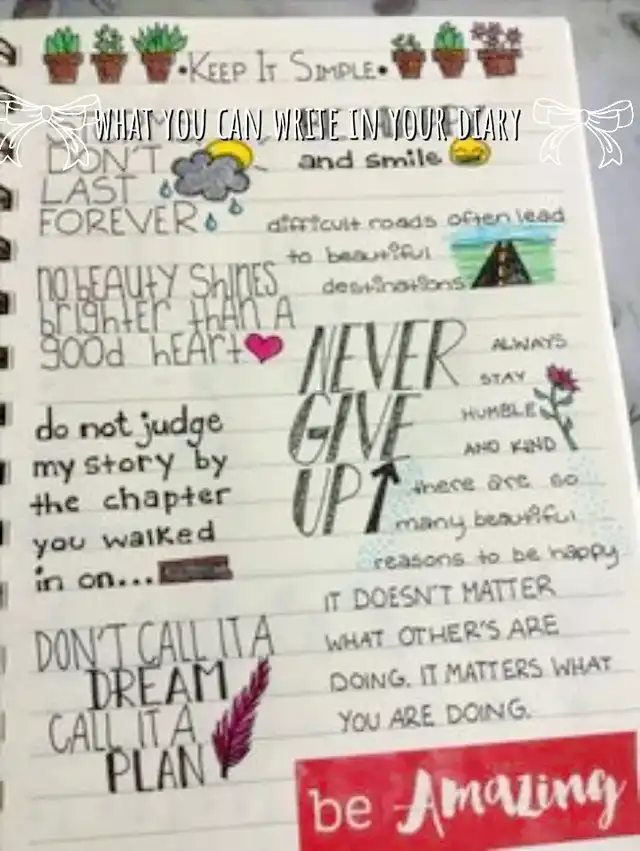 •KEEP IT SIMPLE•
WHAT YOU CAN WRITE IN YOUR DIARY
DON'T
LAST
FOREVER
and smile
difficult roads often lead
to beautiful
destinations
no beauty shines
brighter than a
good heart
NEVER
GIVE
UP
ALWAYS
STAY
HUMBLE
AND KIND
do not judge
my story by
the chapter
you walked
in on...
there are so
many beautiful
reasons to be happy
DON'T CALL IT A
DREAM
CALL IT A
PLAN
IT DOESN'T MATTER
WHAT OTHER'S ARE
DOING. IT MATTERS WHAT
YOU ARE DOING.
be Amazing